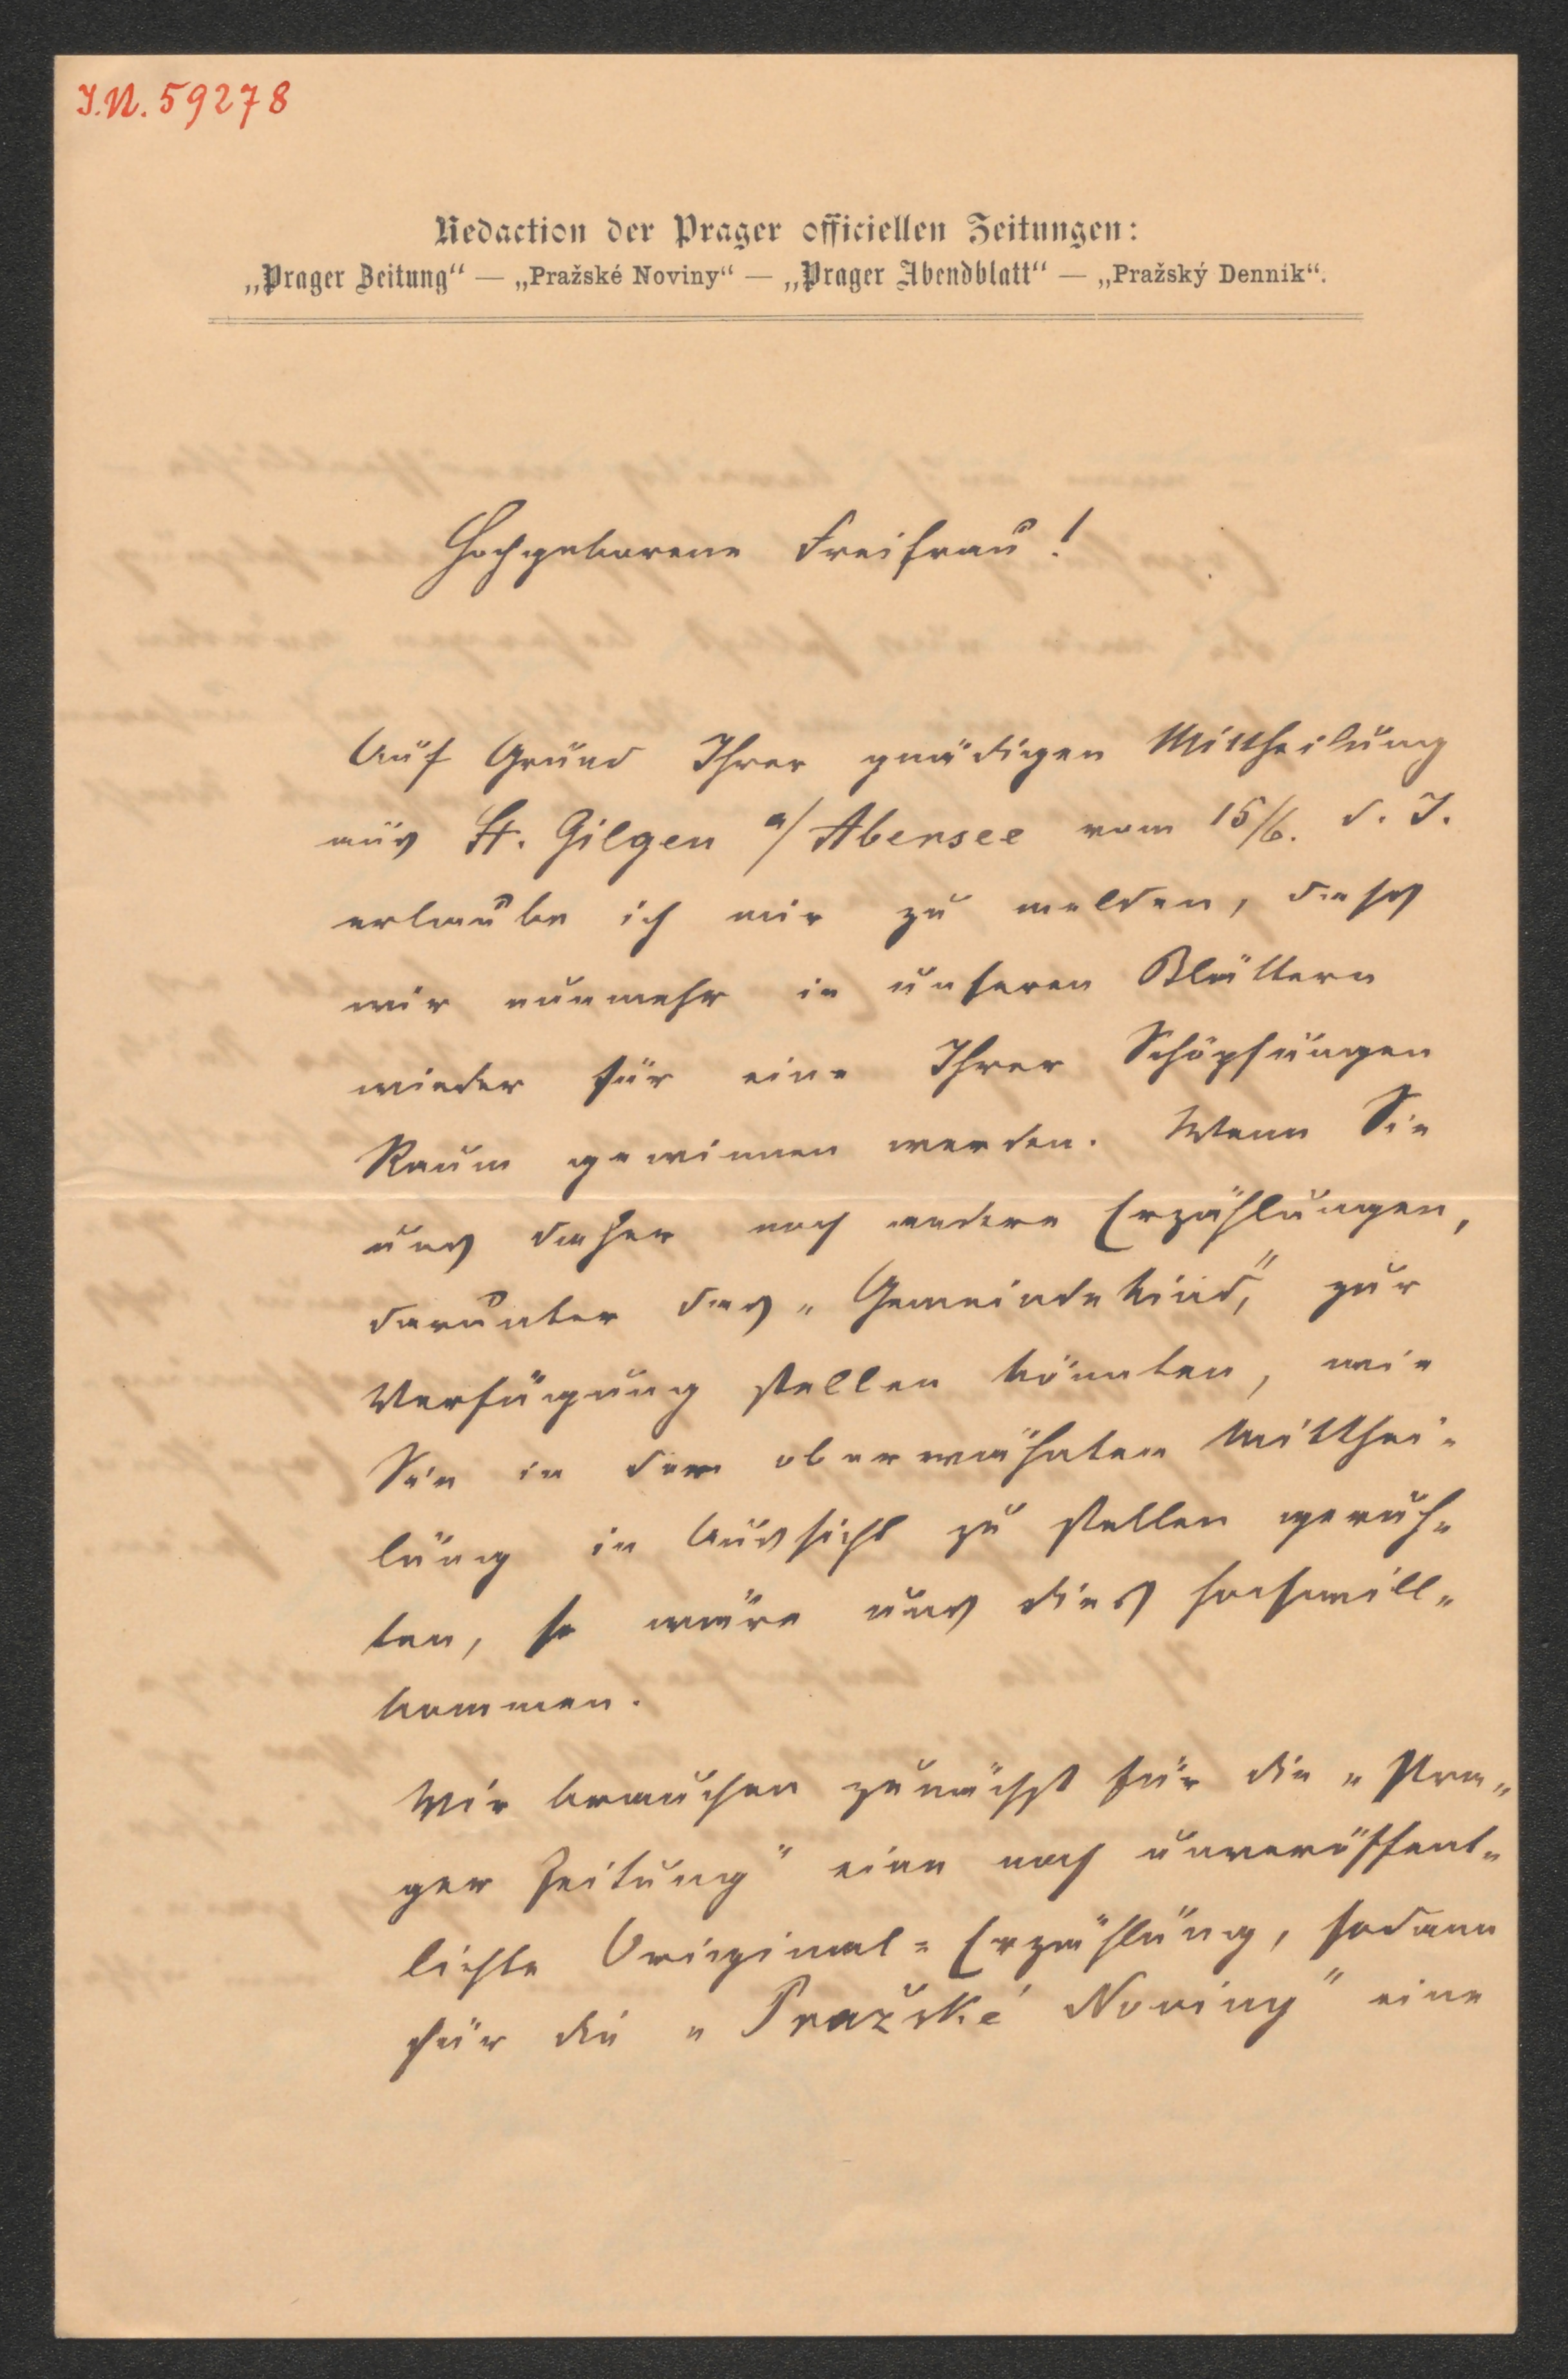 I.N. 59278
Redaction der Prager officiellen Zeitungen:
„Prager Zeitung“ — „Pražské Noviny“ — „Prager Abendblatt“ — „Pražský Denník“.
Hochgeborene Freifrau!
Auf Grund Ihrer gnädigen Mittheilung
aus St. Gilgen a/ Abersee vom 15/6. d. J.
erlaube ich mir zu melden, dass
wir nunmehr in unseren Blättern
wieder für eine Ihrer Schöpfungen
Raum gewinnen werden. Wenn Sie
uns daher noch andere Erzählungen,
darunter das „Gemeindekind“, zur
Verfügung stellen könnten, wie
Sie in der oberwähnten Mitthei-
lung in Aussicht zu stellen geruh-
ten, so wäre uns dies hochwill-
kommen.
Wir brauchen zunächst für die „Pra-
ger Zeitung“ eine noch unveröffent-
lichte Original-Erzählung, sodann
für die „Pražské Noviny“ eine